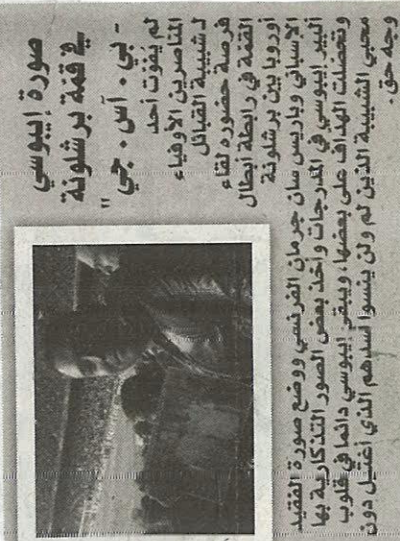 صورة إيبوسي
في قمة برشلونة
- بي . آس . جي "
لم يفوت أحد
المناصرين الأوفياء
لـشبيبة القبائل
فرصة حضوره لقاء
القمة في رابطة أبطال
أوروبا بين برشلونة
الاسباني وباريس سان جرمان الفرنسي ووضع صورة الفقيد
ألبير إيبوسي في المدرجات وأخذ بعض الصور التذكارية بها
وتحصلت الهداف على بعضها، ويبقى إيبوسي دائما في قلوب
محبي الشبيبة الذين لم ولن ينسوا أسدهم الذي أغتيل دون
وجه حق.